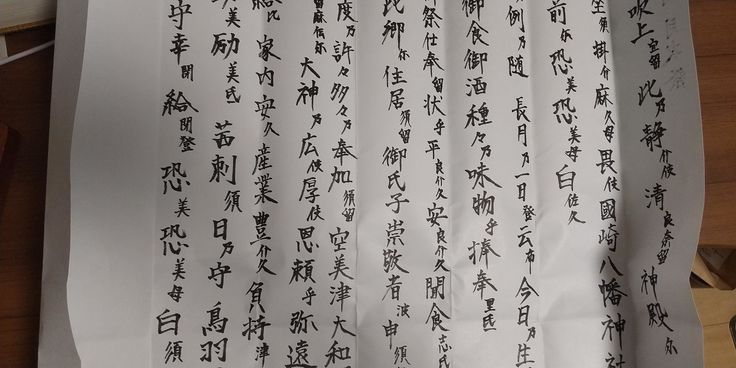 吹上留此乃静介伎清良奈留神殿尓
坐須掛介麻久母畏伎國崎八幡神社
前尓恐美恐美母白佐久
例乃随長月乃一日登云布今日乃生
御食御酒種々乃味物乎捧奉里氐
祭仕奉留状乎平良介久安良介久聞食志氐
此郷尓住居須留御氏子崇敬者波申須
度乃許々多々乃奉加須留空美津大和
留麻仁尓大神乃広伎厚伎恩頼乎弥遠
比家内安久産業豊介久負持津
励美氐苦刺須日乃守鳥羽
守幸閇給閇登恐美恐美母白須